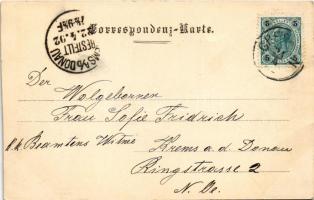 Correspondenz-Karte.
KREMS a/d DONAU
BESTELLT
22.4.92
Der
Wolgebornen
Frau Sofie Fridrich
k.k. Beamtens Witwe
Krems a.d. Donau
Ringstrasse 2
N. Oe.